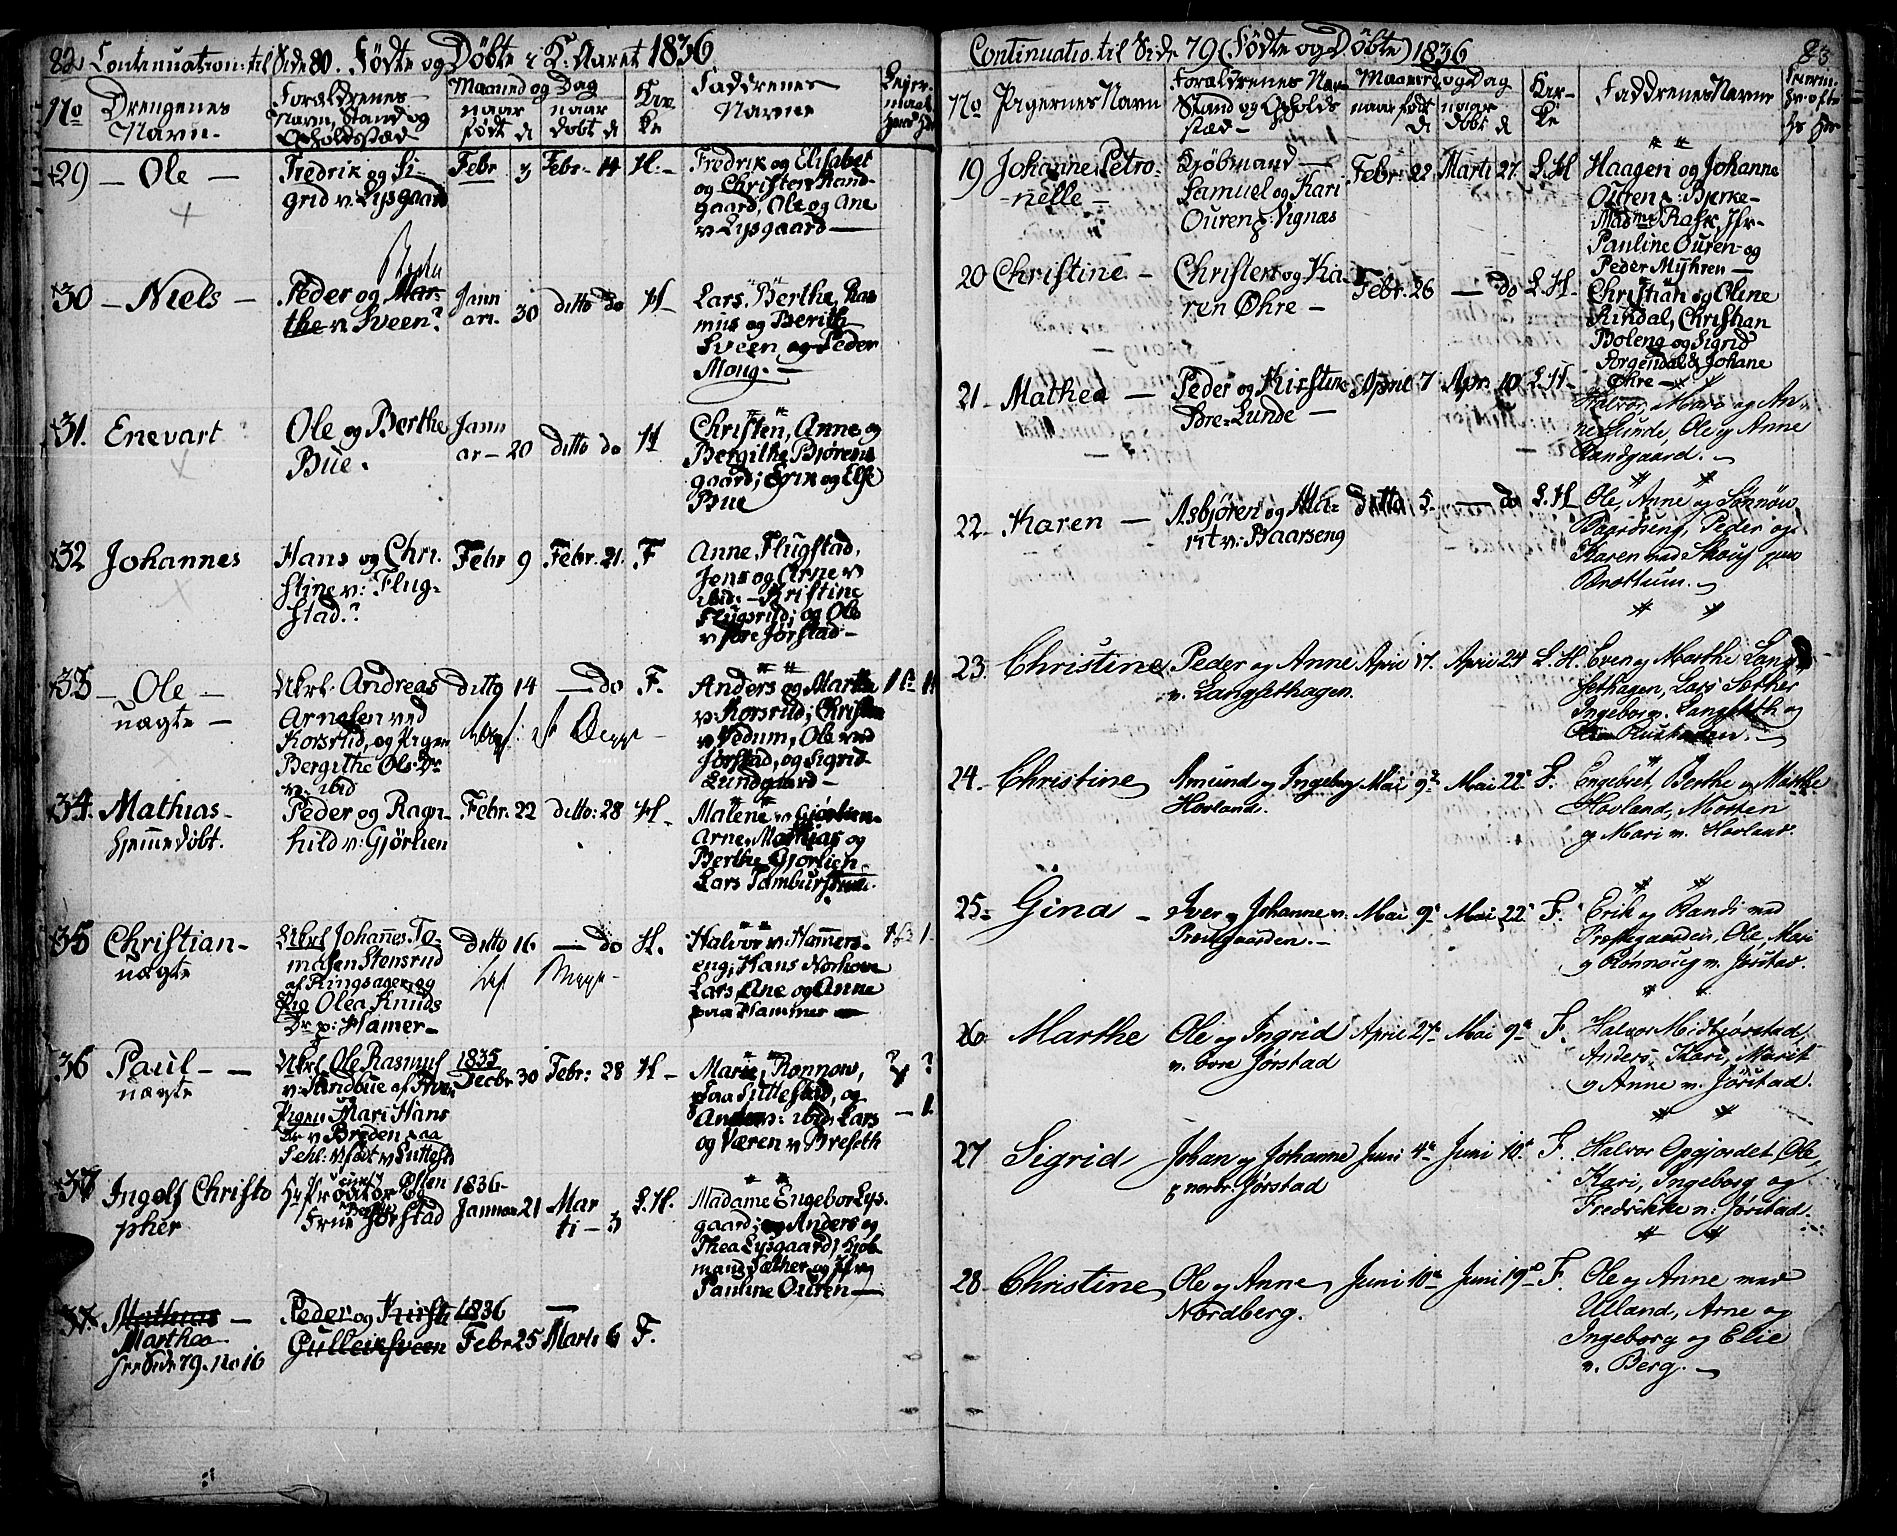 82 Continuation: til Side 80. Fødte og Døbte i K: Aaret 1836
No
Drengenes
Navn
Foraldrenes
Navn, Stand og
Opholdsstæd
Maaned og Dag
naar
født d
naar
døbt d
Kir
ke
Faddrenes
Navne
29 — Ole —
Fredrik og Si-
grid v. Lysgaard
Febr 3 Febr. 14 H.
Fredrik og Elisabet
og Christen Rand-
gaard, Ole og Ane
v Lysgaard —
30 — Niels —
Peder og Mar-
the v. Sveen?
Janu
ari. 30 ditto do H
Lars, Berthe, Ras
mus og Berith
Sveen og Peder
Moug. —
31. Enevart
Ole og Berthe
Bue.
Janu
ar — 20 ditto do H
Christen, Anne og
Bergithe Bjørens
gaard; Erik og Else
Bue
32 Johannes
Hans og Chri-
stine v: Flug-
stad?
Febr 9 Febr. 21. F
Anne Flugstad,
Jens og Arne v
ibid. — Kristine
Flugsrud; og Ole
v øvre Jørstad —
33 — Ole —
uægte —
Ukrl. Andreas
Arnesen ved
Korsrud, og Pigen
Bergithe Ols: Dr
v: ibid
ditto 14 — do F.
Anders og Marthe
v: Korsrud; Christen
v Vedum, Ole ved
Jørstad, og Sigrid
Lundgaard —
34. Mathias
hjemmedøbt.
Peder og Ragn-
hild v: Gjørlien
Febr. 22 ditto: 28 H —
Malene v Gjørlien
Arne, Mathias og
Berthe Gjørlien
Lars Tambur
35 Christian —
uægte
Ukrl Johannes To-
masen Stensrud
af Ringsager, og
Pig Olea Knuds
Dr p: Hamer —
ditto 16 — do H.
Halvor v: Hammers-
eng, Hans Norhove
Lars, Ane og Anne
paa Hammer —
36 Paul — —
uægte
Ukrl Ole Rasmus
Pigen Mari Hans
Dr v Breden, paa
1835
Decbr 30 Febr: 28 H —
Marie, Rønnow,
paa Suttestad, og
Anders v: ibid, Lars
og Væren v Breseth
? ?
— 1.
37 Ingolf Christo
pher
Hr Procurator Østen
Frue Jørstad
1836 —
Januar 21 Mar
ti — 3 L. H.
Madame Engebor Lys-
gaard; og Anders og
Thea Lysgaard, Kjøb
mand Sæther og Jfr
Pauline Ouren —
37. Mathias —
Marthea
see Side 79. No 16
Peder og Kirsti
Gulleiksveen
1836 —
Febr 25 Marti 6 F.
Continuatio. til Side 79 (Fødte og Døbte) 1836 83
No
Pigernes Navn
Foraldrenes Nav-
Stand og Opholds
stæd —
Maaned og Dag
naar født
d
naar
døbt d
Kir-
ke
Faddrenes Navne
19 Johanne Petro-
-nelle —
Kjøbmand —
Samuel og Kari
Ouren p: Vignæs
Febr: 22 Marti 27. L. H
Haagen og Johanne
Ouren p: Bjerke —
Madme Rafn, Jfr.
Pauline Ouren og
Peder Myhren —
20 Christine —
Christen og Ka-
ren Øhre —
Febr. 26 — do L. H
Christian og Oline
Rindal, Christian
Boleng og Sigrid
Jørgendal & Johane
Øhre —
21. Mathea —
Peder og Kirstine
Øvre Lunde —
April 7 Apr. 10 L. H —
Halvor, Mari og An-
ne Lunde, Ole og Anne
Randgaard. —
22. Karen —
Asbjøren og Ma-
rit v: Baarseng
ditto 5 — do L. H
Ole, Anne og Rønnow
Baardseng, Peder og
Karen ved Skoug paa
Brøttum. —
23. Christine
Peder og Anne
v. Langsethagen.
April 17. April 24 L. H.
Even og Marthe Lang
sethagen, Lars Sæther
Ingeborg v. Langseth og
24. Christine
Amund og Ingeborg
Hovland.
Mai 9 Mai 22 F.
Engebret, Berthe og Marthe
Hovland, Morten
og Mari v. Hovland.
25 — Gina —
Iver og Johanne v.
Præstgaarden. —
Mai 9 Mai 22 F.
Erik og Randi ved
Præstegaarden, Ole, Mari
og Rønnoug v. Jørstad.
26. Marthe
Ole og Ingrid
v. øvre Jørstad
April 27 Mai 9 F.
Halvor Midtjørstad,
Anders, Kari, Marit
og Anne v. Jørstad.
27 Sigrid
Johan og Johanne
p nordr. Jørstad
Juni 4 Juni 10 F.
Halvor Opgjordet, Ole,
Kari, Ingeborg og
Fredrikke v: Jørstad.
28 — Christine
Ole og Anne
Nordberg.
Juni 10 Juni 19 F.
Ole og Anne ved
Ulland, Arne og
Ingeborg og Elie
v. Berg. —